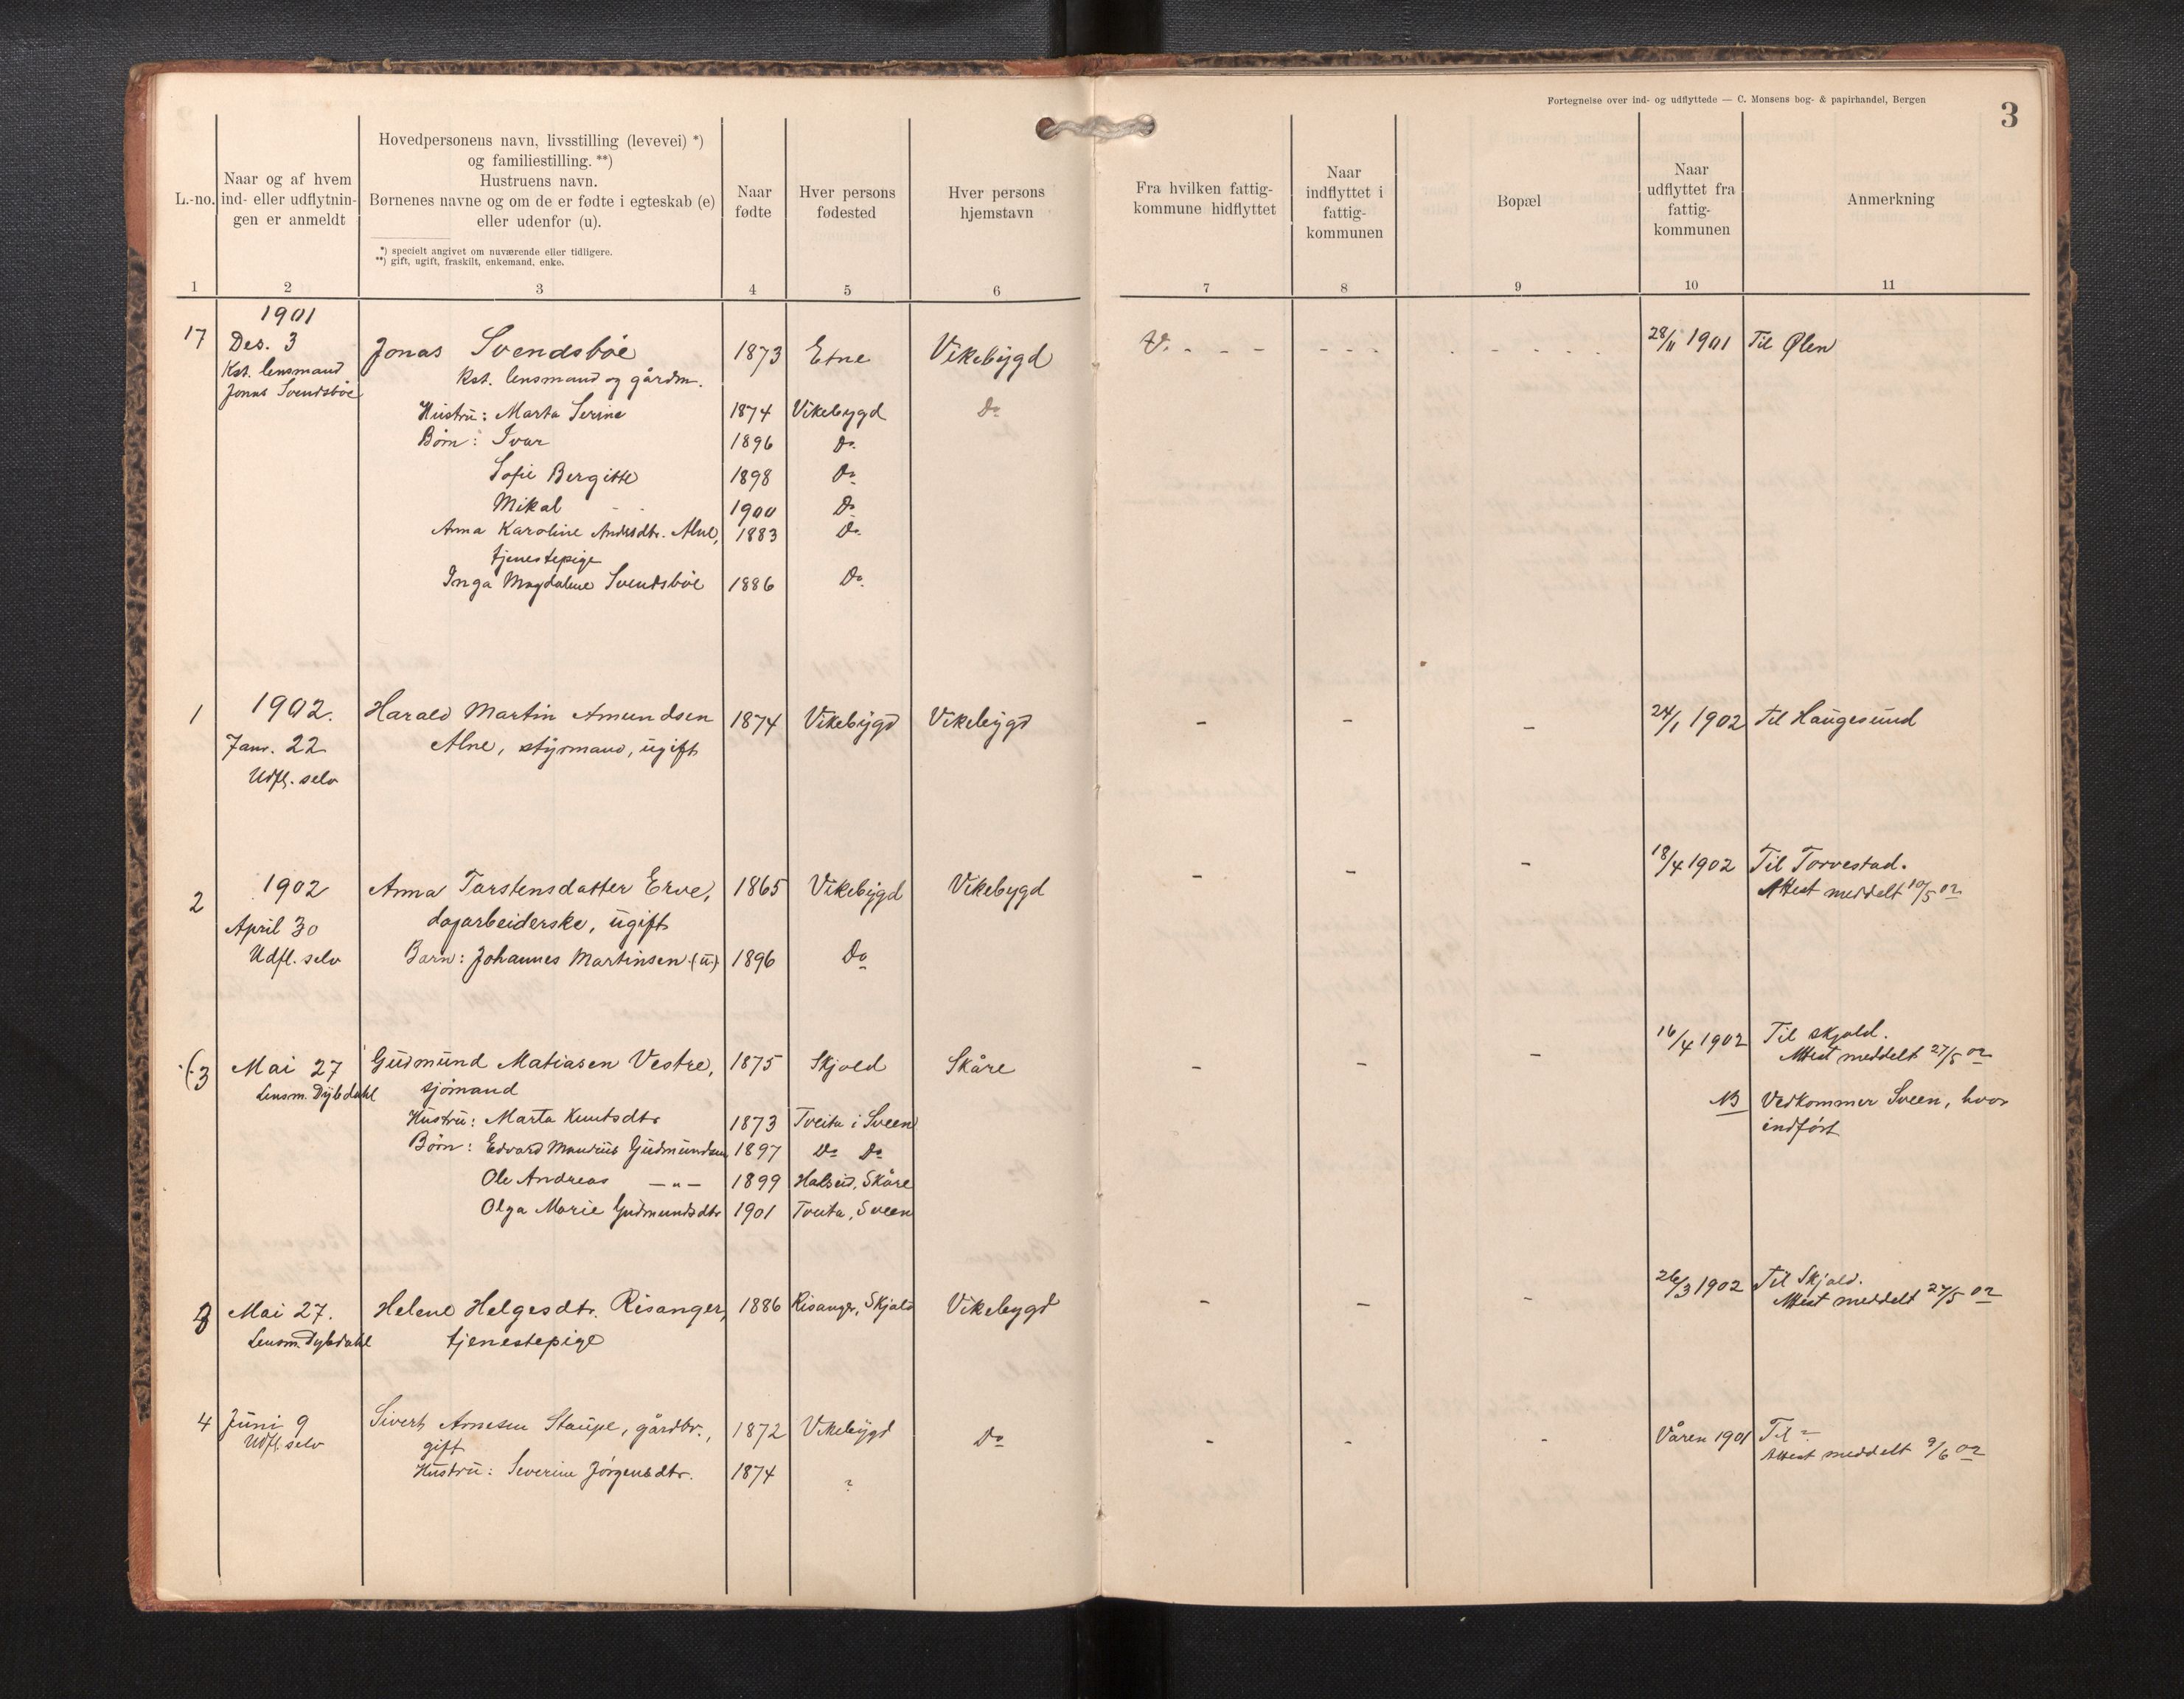 Fortegnelse over ind- og udflyttede — C. Monsens bog- & papirhandel, Bergen
3
L.-no.
Naar og af hvem
ind- eller udflytnin-
gen er anmeldt
Hovedpersonens navn, livsstilling (levevei) *)
og familiestilling. **)
Hustruens navn.
Børnenes navne og om de er fødte i egteskab (e)
eller udenfor (u).
*) specielt angivet om nuværende eller tidligere.
**) gift, ugift, fraskilt, enkemand, enke.
Naar
fødte
Hver persons
fødested
Hver persons
hjemstavn
Fra hvilken fattig-
kommune hidflyttet
Naar
indflyttet i
fattig-
kommunen
Bopæl
Naar
udflyttet fra
fattig-
kommunen
Anmerkning
1 2 3 4 5 6 7 8 9 10 11
1901
17 Des. 3 Jonas Svendsbøe 1873 Etne Vikebygd V. - - - - - - - - - - - 28/11 1901 Til Ølen
Kst. lensmand
Jonas Svendsbøe
Kst. lensmand og gårdm.
Hustru: Marta Serine 1874 Vikebygd Do
Børn: Ivar 1896 Do
Sofie Bergitte 1898 Do
Mikal 1900 Do
Anna Karoline Andrsdtr. Alne, 1883 Do
tjenestepige
Inga Magdalene Svendsbøe 1886 Do
1 1902. Harald Martin Amundsen 1874 Vikebygd Vikebygd - - - 24/1 1902 Til Haugesund
Janr. 22 Alne, styrmand, ugift
Udfl. selv
2 1902 Anna Torstensdatter Erve, 1865 Vikebygd Vikebygd - - - 18/4 1902 Til Torvestad.
Attest meddelt 10/5 02
April 30 dagarbeiderske, ugift
Udfl. selv Barn: Johannes Martinsen (u) 1896 Do
(3 Mai 27 Gudmund Matiasen Vestre, 1875 Skjold Skåre - - - 16/4 1902 Til Skjold.
Attest meddelt 27/5 02
Lensm. Dybdahl sjømand
NB Vedkommer Sveen, hvor
indført
Hustru: Marta Knutsdtr 1873 Tveita i Sveen
Børn: Edvard Mandrus Gudmundsen 1897 Do Do
Ole Andreas —"— 1899 Halseid, Skåre
Olga Marie Gudmundsdtr 1901 Tveita, Sveen
3 Mai 27. Helene Helgesdtr. Risanger, 1886 Risanger, Skjold Vikebygd - - - 26/3 1902 Til Skjold.
Attest meddelt 27/5 02
Lensm. Dybdahl tjenestepige
4 Juni 9 Sivert Arnesen Staupe, gårdbr., 1872 Vikebygd Do - - - Våren 1901 Til ?
Attest meddelt 9/6 02
Udfl. selv gift
Hustru: Severine Jørgensdtr. 1874 ?